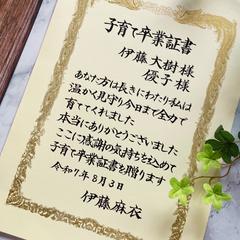 子育て卒業証書
伊藤大樹様
優子様
あなた方は長きにわたり私は
温かく見守り今日まで全力で
育ててくれました
本当にありがとうございました
ここに感謝の気持ちを込めて
子育て卒業証書を贈ります
令和7年8月3日
伊藤麻衣